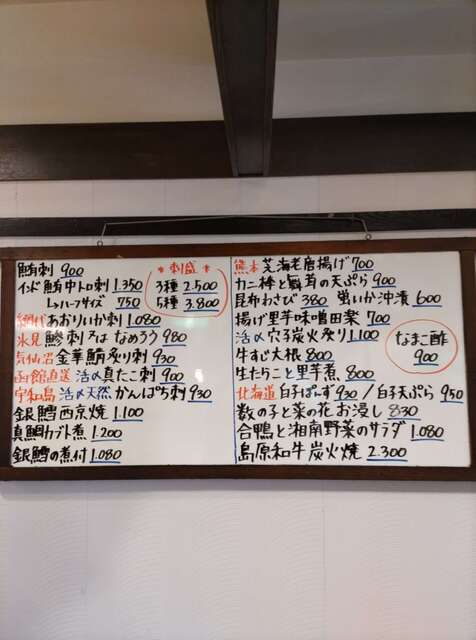 鮪刺 900
インド鮪中トロ刺 1.350
ハーフサイズ 750
網代 あおりいか刺 1.080
氷見 鯵刺又はなめろう 980
気仙沼 金華鯖炙り刺 930
函館直送 活〆真たこ刺 900
宇和島 活〆天然かんぱち刺 930
銀鱈西京焼 1.100
真鯛カブト煮 1.200
銀鱈の煮付 1.080
* 刺盛 *
3種 2.500
5種 3.800
熊本 芝海老唐揚げ 700
カニ棒と舞茸の天ぷら 900
昆布わさび 380 蛍いか沖漬 600
揚げ里芋味噌田楽 700
活〆穴子炭火炙り 1.100
牛すじ大根 800
生たらこと里芋煮 800
北海道 白子ぽんず 930 / 白子天ぷら 950
数の子と菜の花お浸し 830
合鴨と湘南野菜のサラダ 1.080
島原和牛炭火焼 2.300
なまこ酢
900